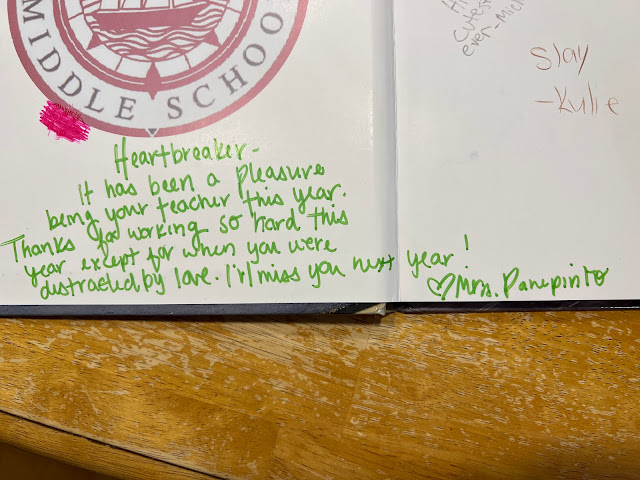 MIDDLE SCHOOL
Heartbreaker-
It has been a pleasure
being your teacher this year.
Thanks for working so hard this
year except for when you were
distracted by love. I'll miss you next year!
♡Mrs. Panepinto
cutest
ever-Mich
slay
-Kylie